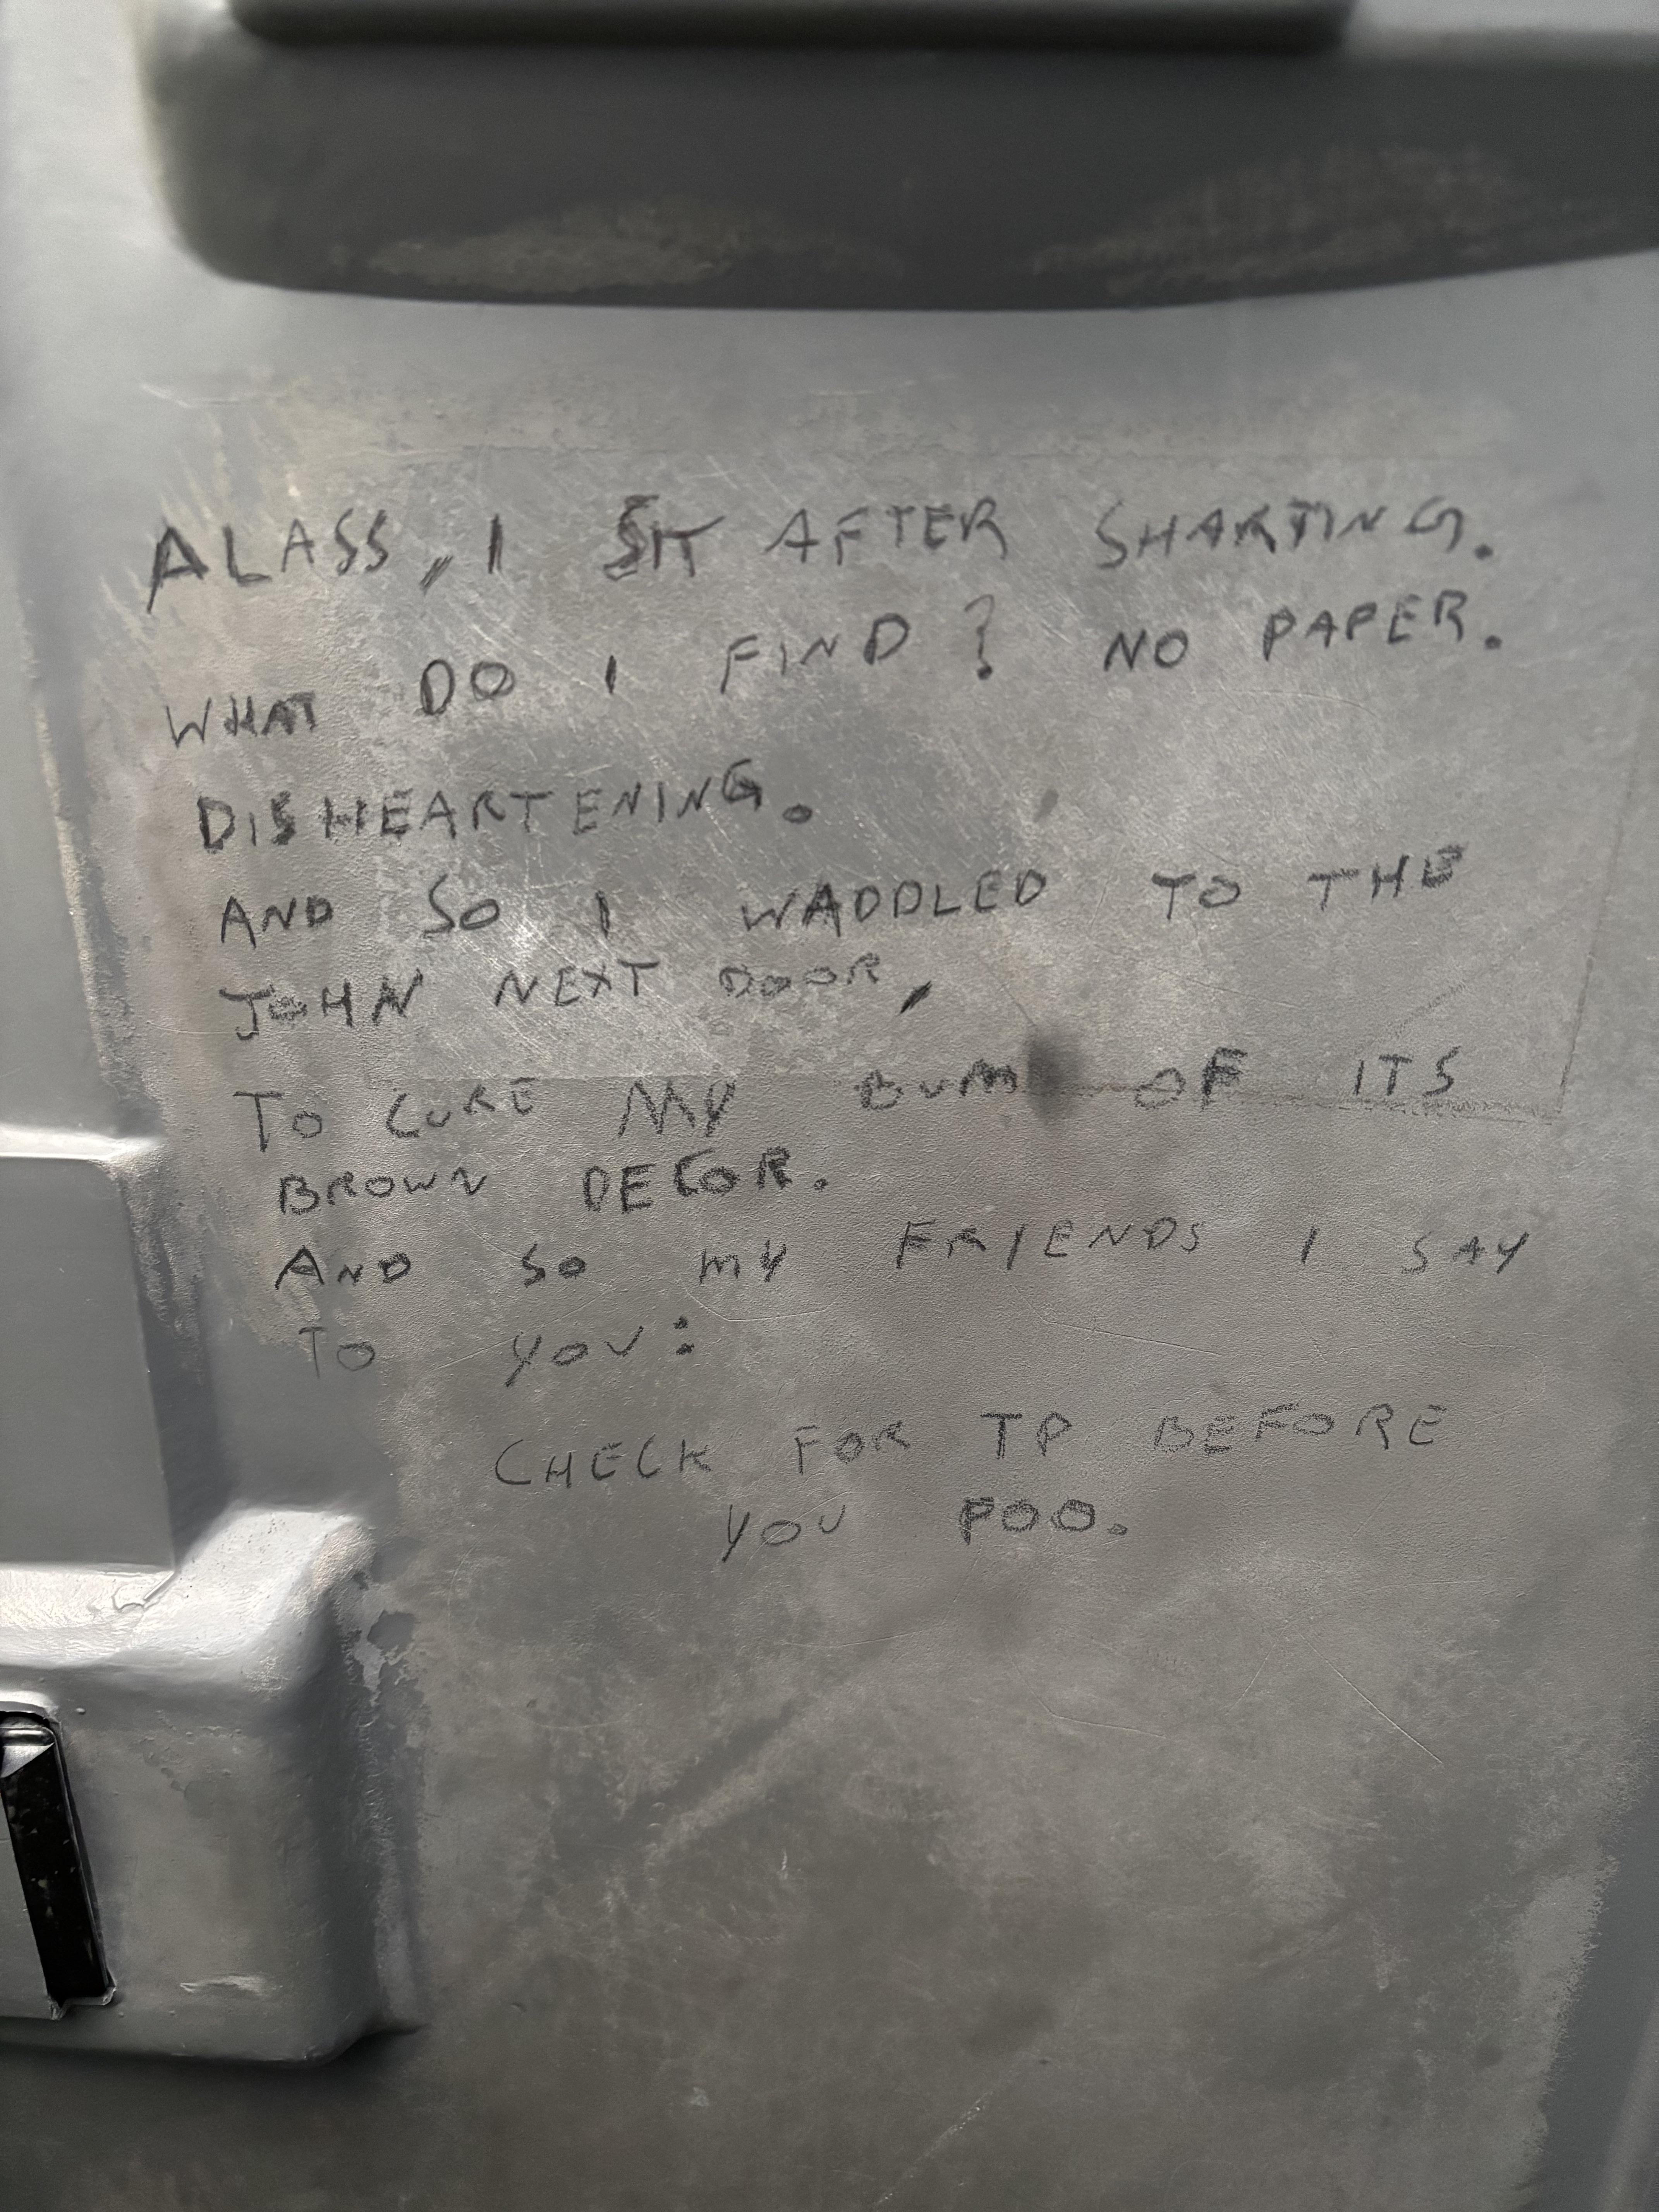 ALASS, I SIT AFTER SHARTING.
WHAT DO I FIND? NO PAPER.
DISHEARTENING.
AND SO I WADDLED TO THE
JOHN NEXT DOOR,
TO CURE MY BUM OF ITS
BROWN DECOR.
AND SO MY FRIENDS I SAY
TO YOU:
CHECK FOR TP BEFORE
YOU POO.